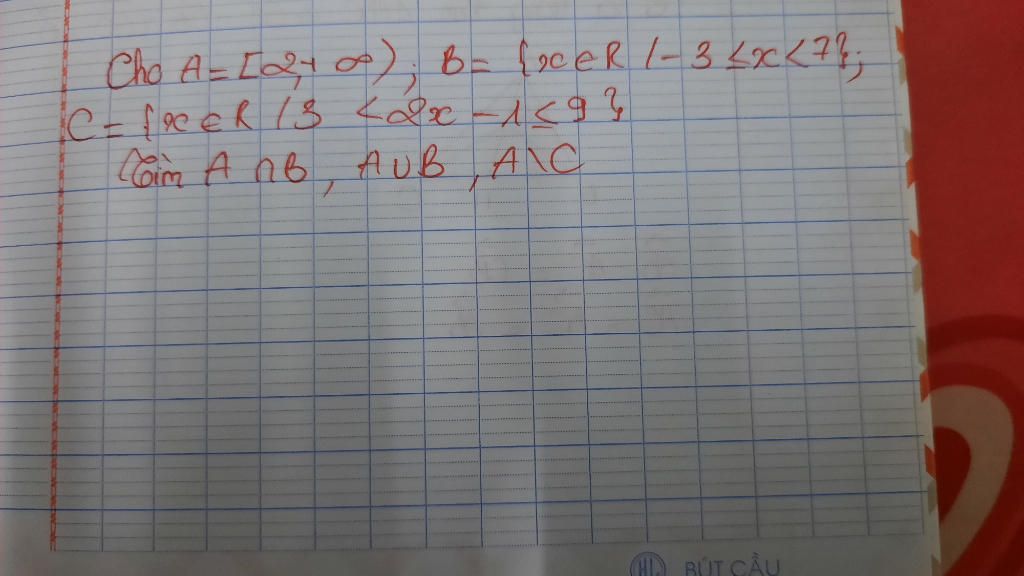 Cho A = [2, +∞); B = {x∈R / -3 ≤ x < 7};
C = {x∈R / 3 < 2x - 1 ≤ 9}
Tìm A ∩ B, A ∪ B, A \ C
HL BÚT CẦU